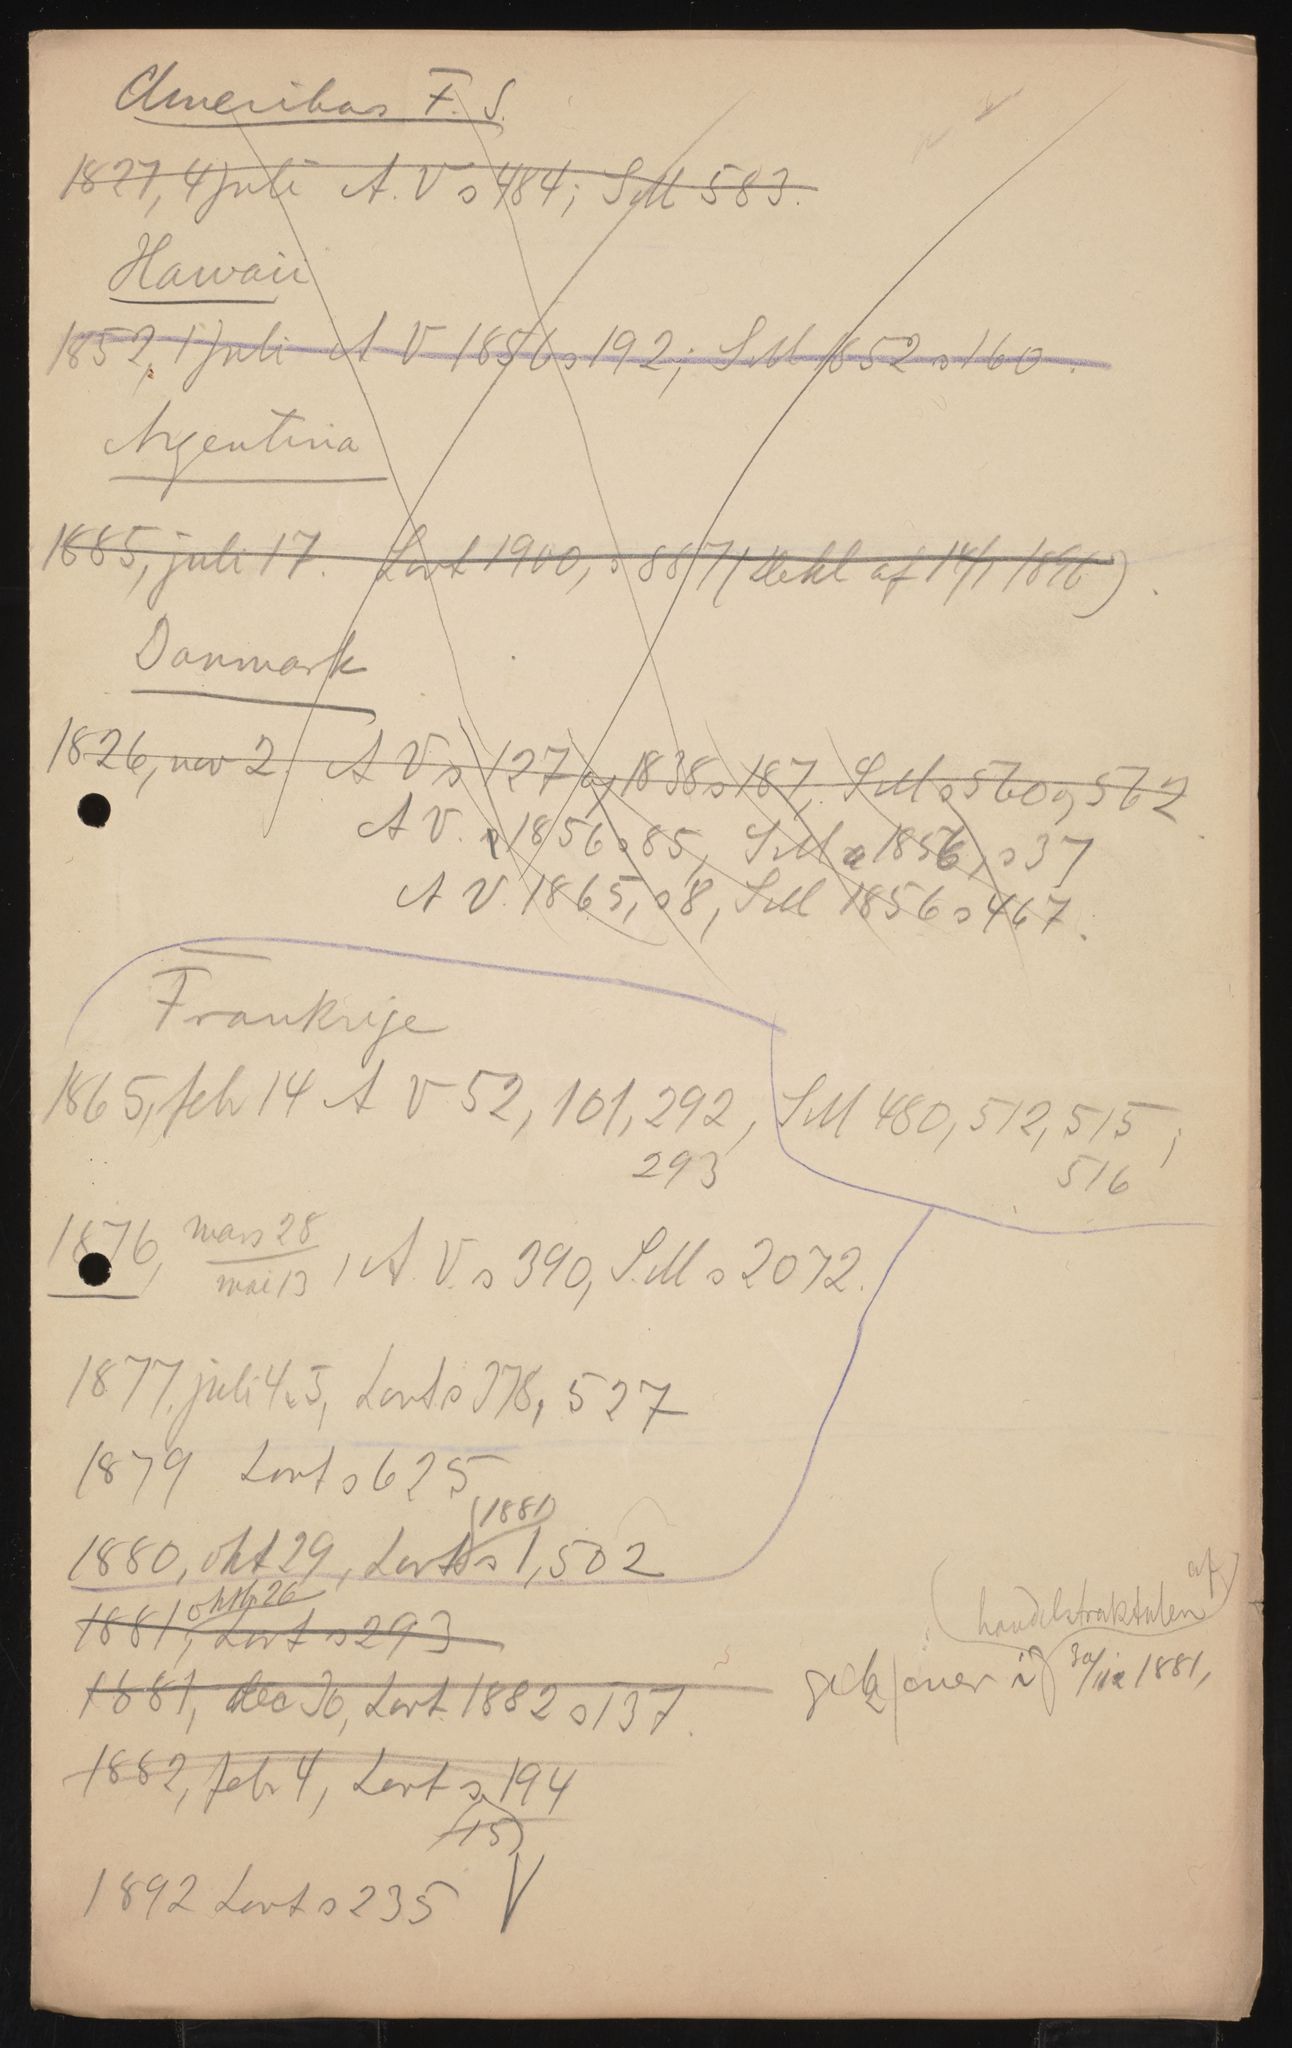 Amerikas F. S.
1827, 4 juli A. V s 484; S.M 583.
Hawaii
1852, 1 juli A V 1856 s 192; S M 1852 s 160.
Argentina
1885, juli 17. Lovt 1900, s 887 (Dekl af 14/1 1896).
Danmark
1826, nov 2. A V s 127 og 1838 s 187, S M s 560 og 562
A V. s 1856 s 85, S M a 1856, s 37
A V. 1865, s 8, S M 1856 s 467.
Frankrige
1865, feb 14 A V 52, 101, 292, S M 480, 512, 515;
293 516
1876, mars 28 / mai 13, A. V. s 390, S. M s 2072.
1877, juli 4 s 5, Lovt s 378, 527
1879 Lovt s 625
(1881)
1880, okt 29, Lovt s 1, 502
oktbr 26
1881, Lovt s 293
1881, dec 30, Lovt 1882 s 137.
(handelstraktaten af)
i 1881,
1882, febr 4, Lovt s 194
(15)
1892 Lovt s 235 V